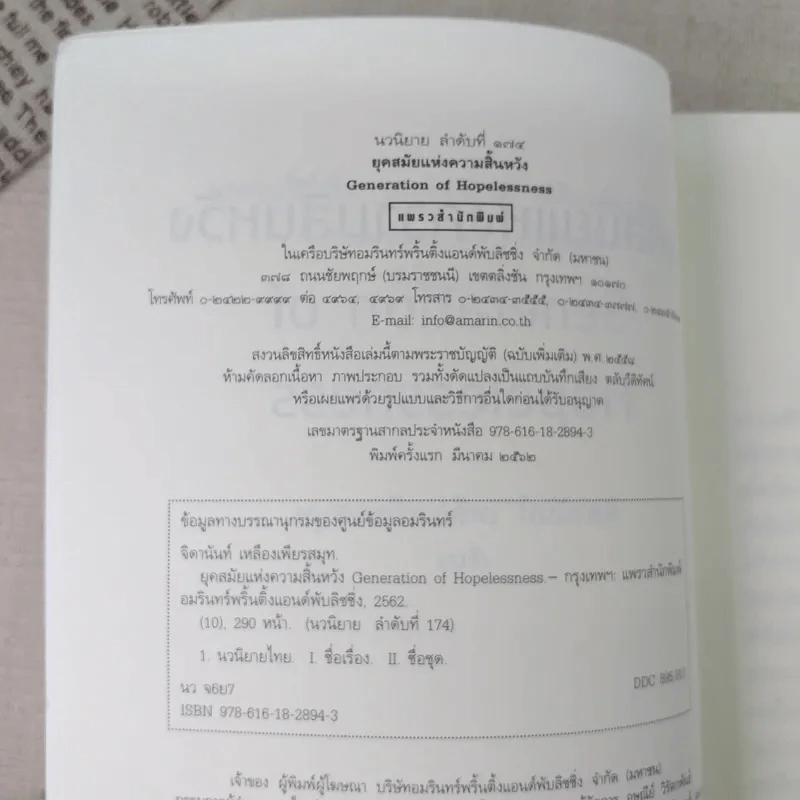 นวนิยาย ลำดับที่ ๑๗๔
ยุคสมัยแห่งความสิ้นหวัง
Generation of Hopelessness
แพรวสำนักพิมพ์
ในเครือบริษัทอมรินทร์พริ้นติ้งแอนด์พับลิชชิ่ง จำกัด (มหาชน)
๓๗๘ ถนนชัยพฤกษ์ (บรมราชชนนี) เขตตลิ่งชัน กรุงเทพฯ ๑๐๑๗๐
โทรศัพท์ ๐-๒๔๒๒-๙๙๙๙ ต่อ ๔๙๖๔, ๔๙๖๙ โทรสาร ๐-๒๔๓๔-๓๕๕๕, ๐-๒๔๓๔-๓๗๗๗,
E-mail: info@amarin.co.th
สงวนลิขสิทธิ์หนังสือเล่มนี้ตามพระราชบัญญัติ (ฉบับเพิ่มเติม) พ.ศ.๒๕๕๘
ห้ามคัดลอกเนื้อหา ภาพประกอบ รวมทั้งดัดแปลงเป็นแถบบันทึกเสียง ตลับวีดิทัศน์
หรือเผยแพร่ด้วยรูปแบบและวิธีการอื่นใดก่อนได้รับอนุญาต
เลขมาตรฐานสากลประจำหนังสือ 978-616-18-2894-3
พิมพ์ครั้งแรก มีนาคม ๒๕๖๒
ข้อมูลทางบรรณานุกรมของศูนย์ข้อมูลอมรินทร์
จิดานันท์ เหลืองเพียรสมุท.
ยุคสมัยแห่งความสิ้นหวัง Generation of Hopelessness.– กรุงเทพฯ: แพรวสำนักพิมพ์
อมรินทร์พริ้นติ้งแอนด์พับลิชชิ่ง, 2562.
(10), 290 หน้า. (นวนิยาย ลำดับที่ 174)
1. นวนิยายไทย. I. ชื่อเรื่อง. II. ชื่อชุด.
นว จ6ย7
DDC
ISBN 978-616-18-2894-3
เจ้าของ ผู้พิมพ์ผู้โฆษณา บริษัทอมรินทร์พริ้นติ้งแอนด์พับลิชชิ่ง จำกัด (มหาชน)